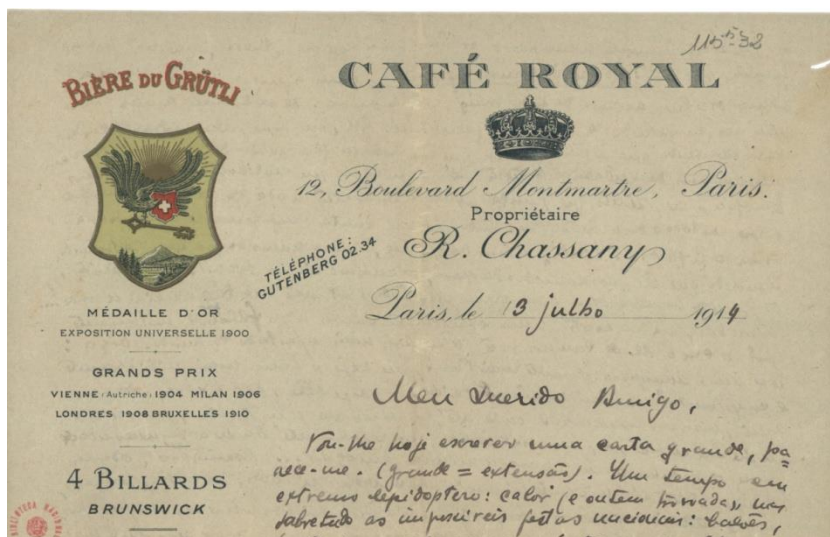 115⁵-32
BIÈRE DU GRÜTLI
CAFÉ ROYAL
12, Boulevard Montmartre, Paris.
Propriétaire
R. Chassany
TÉLÉPHONE:
GUTENBERG 02.34
Paris, le 13 julho 1914
MÉDAILLE D'OR
EXPOSITION UNIVERSELLE 1900
GRANDS PRIX
VIENNE (Autriche) 1904 MILAN 1906
LONDRES 1908 BRUXELLES 1910
4 BILLARDS
BRUNSWICK
Meu Querido Amigo,
Vou-lhe hoje escrever uma carta grande, pa=
rece-me. (grande = extensão). Um tempo em
extremo lepidoptero: calor (e ontem trovoadas)
sobretudo as impossiveis festas nacionais: balões,
BIBLIOTECA NACIONAL